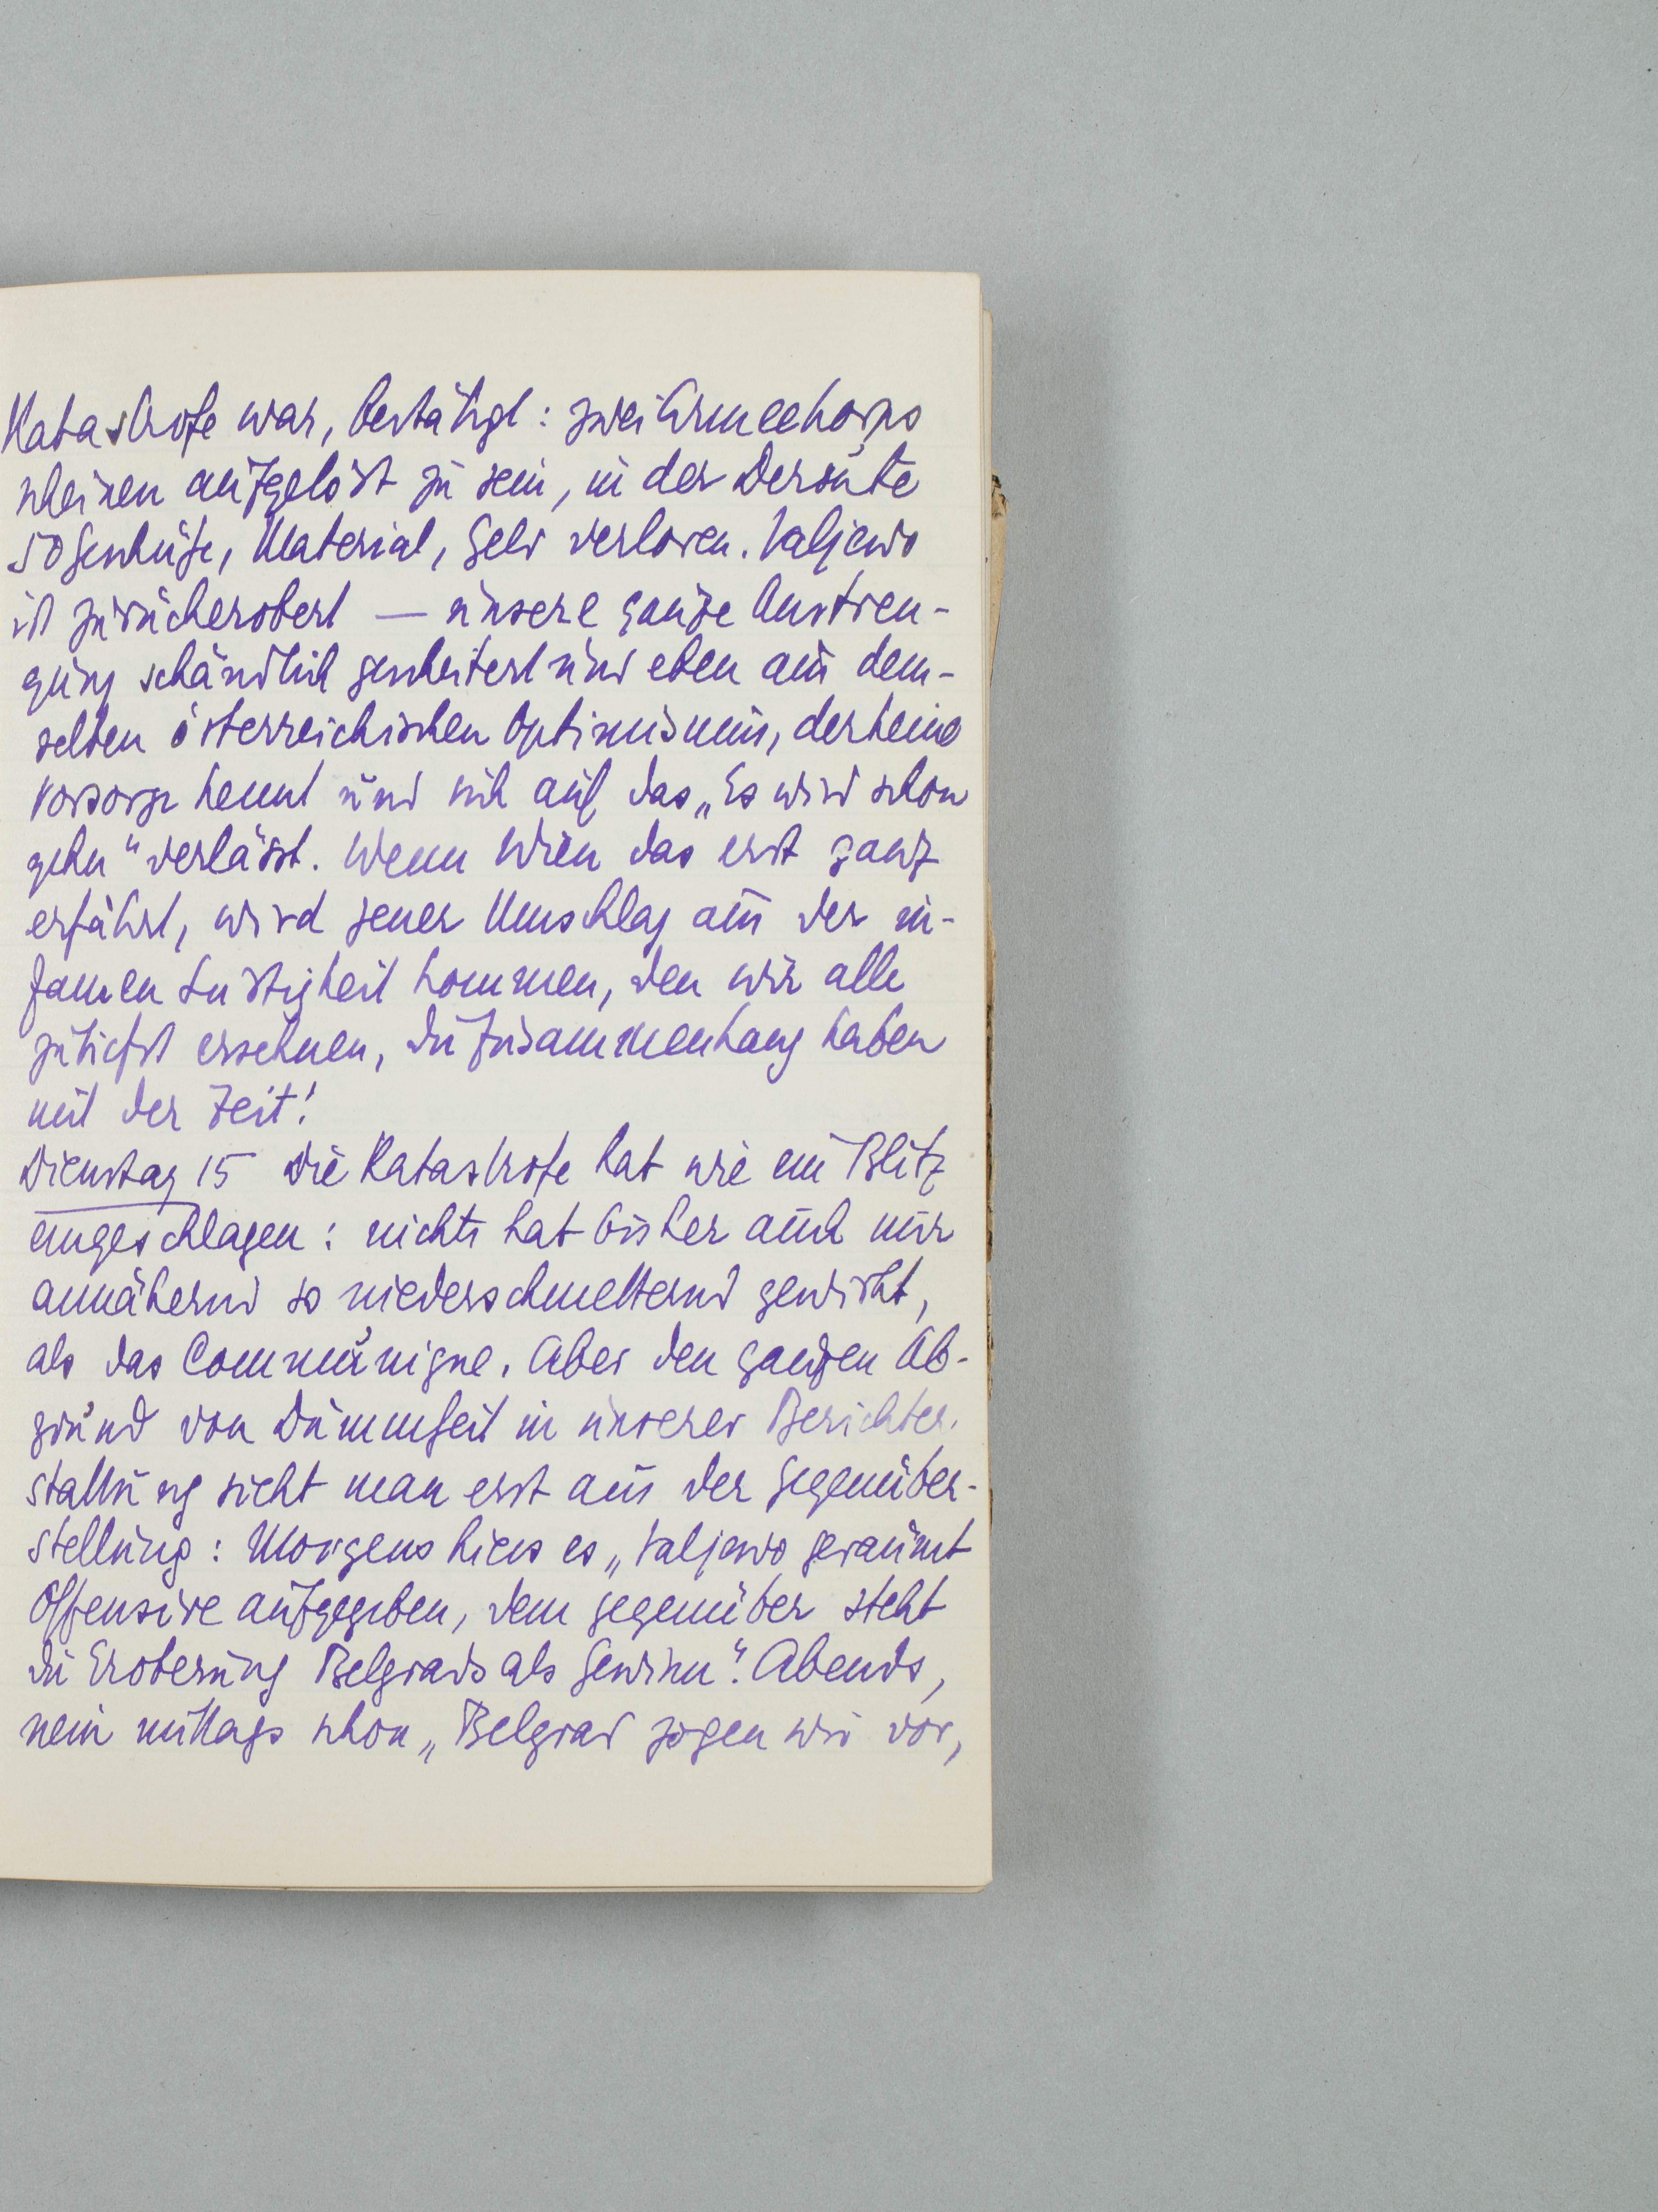 Katastrofe war, bestätigt: zwei Armeekorps
scheinen aufgelöst zu sein, in der Deroute
50 Geschütze, Material, Geld verloren. Valjewo
ist zurückerobert — unsere ganze Anstren-
gung schändlich gescheitert und eben aus dem-
selben österreichischen Optimismus, der keine
Vorsorge kennt und sich auf das „Es wird schon
gehn“ verlässt. Wenn Wien das erst ganz
erfährt, wird jener Umschlag aus der in-
famen Lustigkeit kommen, den wir alle
zutiefst ersehnen, die Zusammenhang haben
mit der Zeit!
Dienstag 15 Die Katastrofe hat wie ein Blitz
eingeschlagen: nichts hat bisher auch nur
annähernd so niederschmetternd gewirkt,
als das Communique. Aber den ganzen Ab-
grund von Dummheit in unserer Berichter-
stattung sieht man erst aus der Gegenüber-
stellung: Morgens hiess es „Valjewo geräumt
Offensive aufgegeben, dem gegenüber steht
die Eroberung Belgrads als Gewinn“. Abends,
nein mittags schon „Belgrad zogen wir vor,